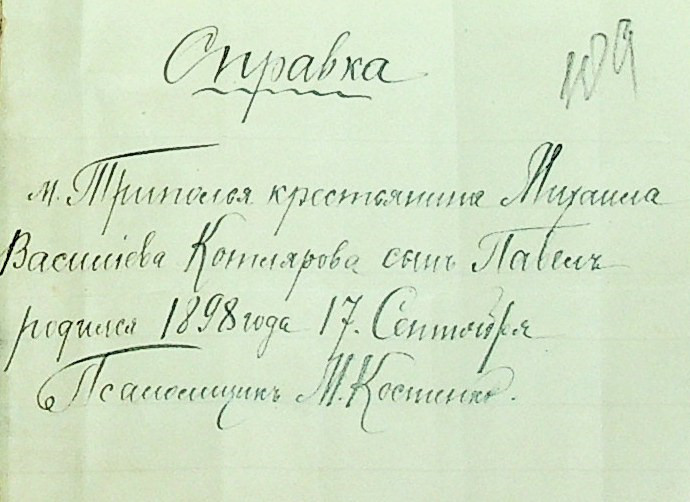 Справка
189
м. Триполья крестьянина Михаила
Василіева Котлярова сынъ Павелъ
родился 1898 года 17. Сентября
Псаломщикъ М. Костенко.